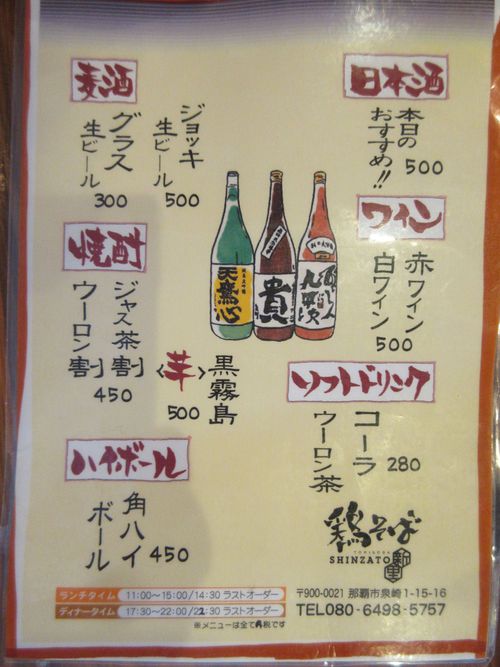 日本酒
本日の
おすすめ!!
500
ワイン
赤ワイン
白ワイン
500
ソフトドリンク
コーラ
ウーロン茶
280
麦酒
ジョッキ
生ビール
500
グラス
生ビール
300
焼酎
ジャス茶割
ウーロン割
450
黒霧島
<芋>
500
ハイボール
角ハイ
ボール
450
天鷹心
貴
九平次
鶏そば
TORISOBA
SHINZATO
新里
ランチタイム 11:00~15:00/14:30 ラストオーダー
ディナータイム 17:30~22:00/22:30 ラストオーダー
※メニューは全て内税です
〒900-0021 那覇市泉崎1-15-16
TEL080-6498-5757